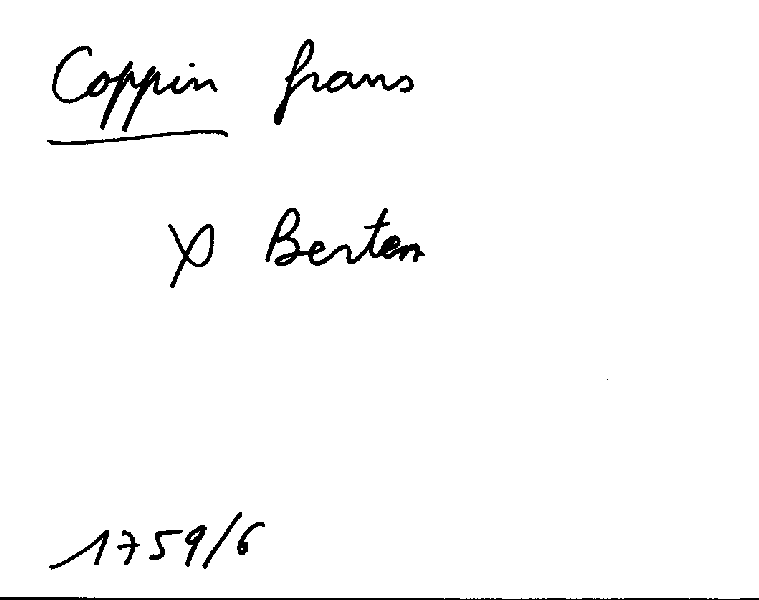 Coppin frans
x Berten
1759/6